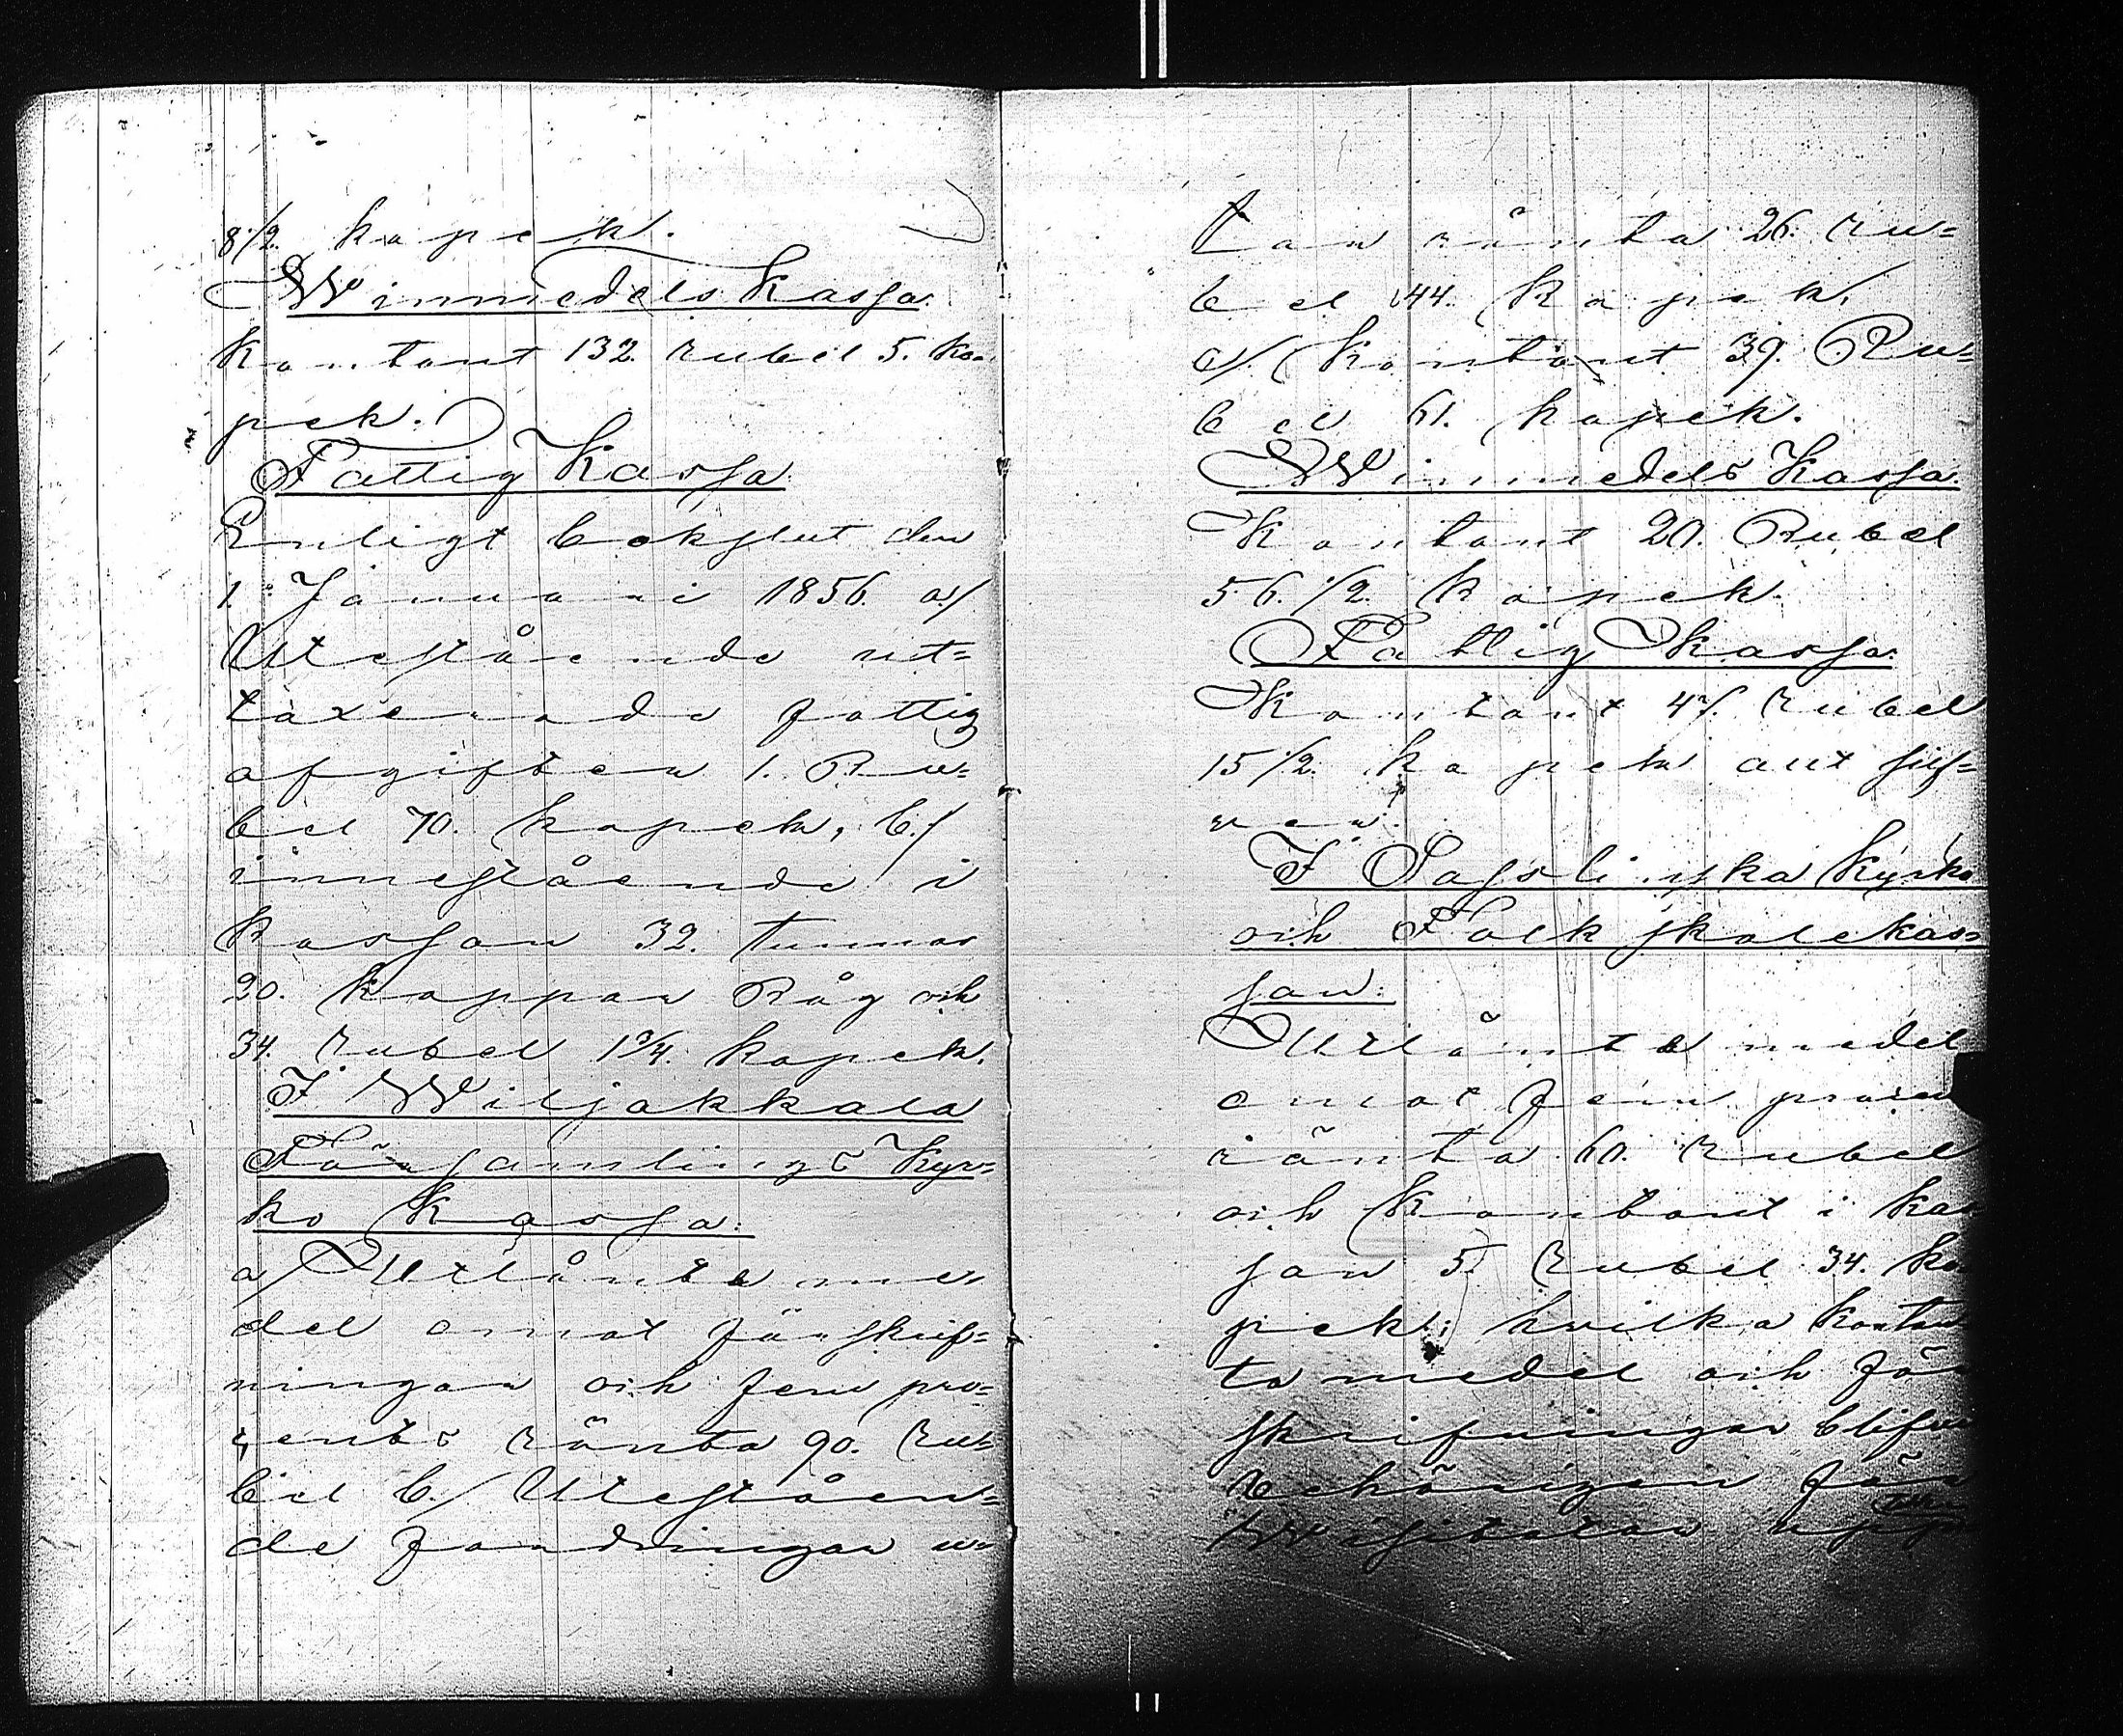 8 1/2. kopek.
Winmedels Kassa.
Kontant 132. rubel 5. ko-
pek.
Fattig Kassa
Enligt bokslut den
1. Januari 1856. a/
Utestående ut=
taxerade fattig
afgifter 1. Ru=
bel 70. kopek, b./
innestående i
Kassan 32. tunnor
20. kappar Råg och
34. rubel 1 3/4. kopek.
I Wiljakkala
Församlings Kyr=
ko Kassa:
a/ Utlånte me-
del emot förskrif=
ningar och fem pro=
cents ränta 90. ru=
bel b./ Uteståen=
de fordringar u=
tan ränta 26. ru=
bel 44. Kopek.
c/. Kontant 39. Ru=
bel 61. kopek.
Winmedels Kassa.
Kontant 20. Rubel
56. 1/2. kopek.
Fattig Kassa.
Kontant 47. rubel
15 1/2. kopek allt silf=
ver.
I Kyrko
och Folkskolekas=
san:
Utlånte medel
emot fem
ränta 60. rubel
och Kontant i kas
san 5. Rubel 34. ko
pek; hvilka kontan
ta medel och för
skrifningar blifvit
behörigen för
Wisitator